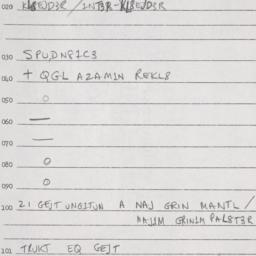 020 KLBEJD3R / INT3R-KLBEJD3R
030 SPUDNPIC3
040 + QGL AZAMIN REKLB
050 O
060 —
070 —
080 O
090 O
100 21 GEJT UNGITUN A NAJ GRIN MANTL /
MAJIM GRINIM PALBT3R
101 TRUKT EQ GEJT